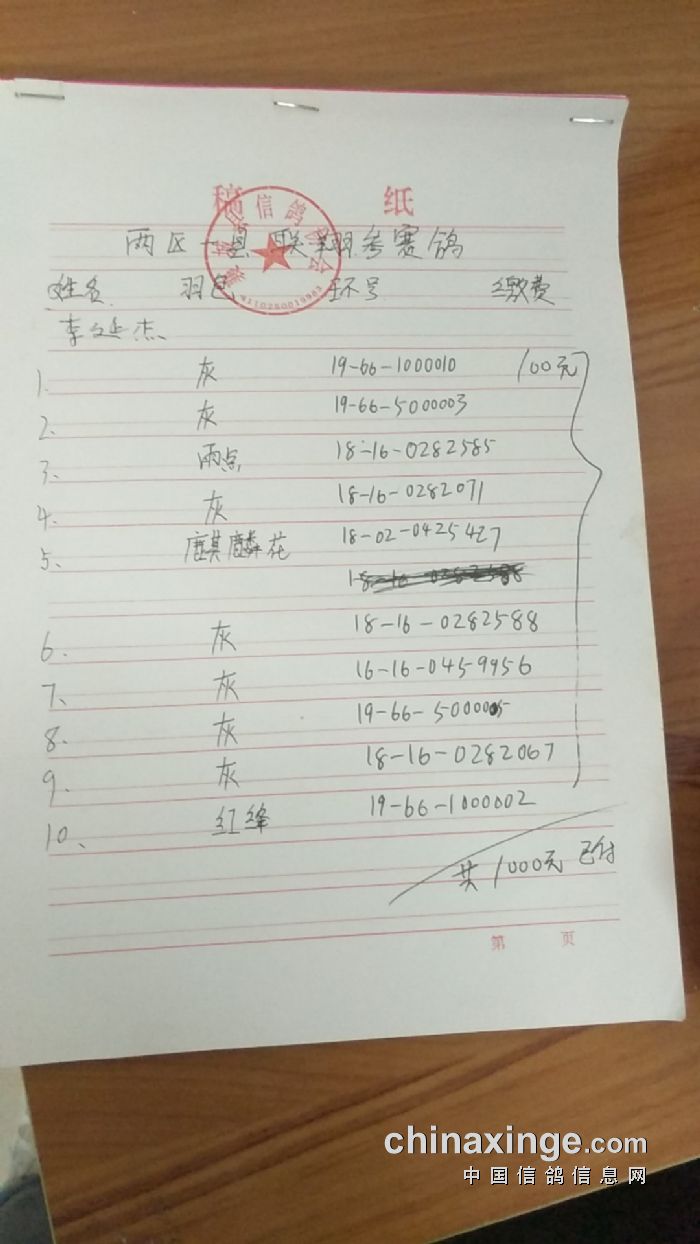 稿 纸
信鸽
4110250019983
两区一县联翔参赛鸽
姓名 羽色 环号 缴费
李延杰
1. 灰 19-66-1000010 100元
2、 灰 19-66-5000003
3、 雨点 18-16-0282585
4、 灰 18-16-0282071
5、 麒麟花 18-02-0425427
18-16-0282588
6. 灰 18-16-0282588
7、 灰 16-16-0459956
8. 灰 19-66-5000005
9. 灰 18-16-0282067
10、 红绛 19-66-1000002
共1000元 已付
第 页
chinaxinge.com
中国信鸽信息网